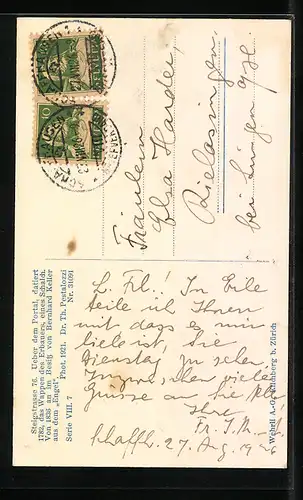 Fräulein
Elsa Harder,
Rielasingen,
bei Singen
L. Frl.! In Eile
teile ich Ihnen
mit dass es mir
lieb ist, Sie
Dienstag zu sehen
Inzwischen viele
Grüsse an Sie
Ihre
Schaffh. 27. Aug. 1926
Steigstrasse 76. Ueber dem Portal, datiert
1782, das Wappen des Erbauers, eines Schalch.
Von 1835 an im Besitz von Bernhard Keller
aus dem „Engel“. Phot. 1921. Dr. Th. Pestalozzi
Serie VIII. 7 Nr. 31091
Wehrli A.-G., Kilchberg b. Zürich
10
10
HELVETIA